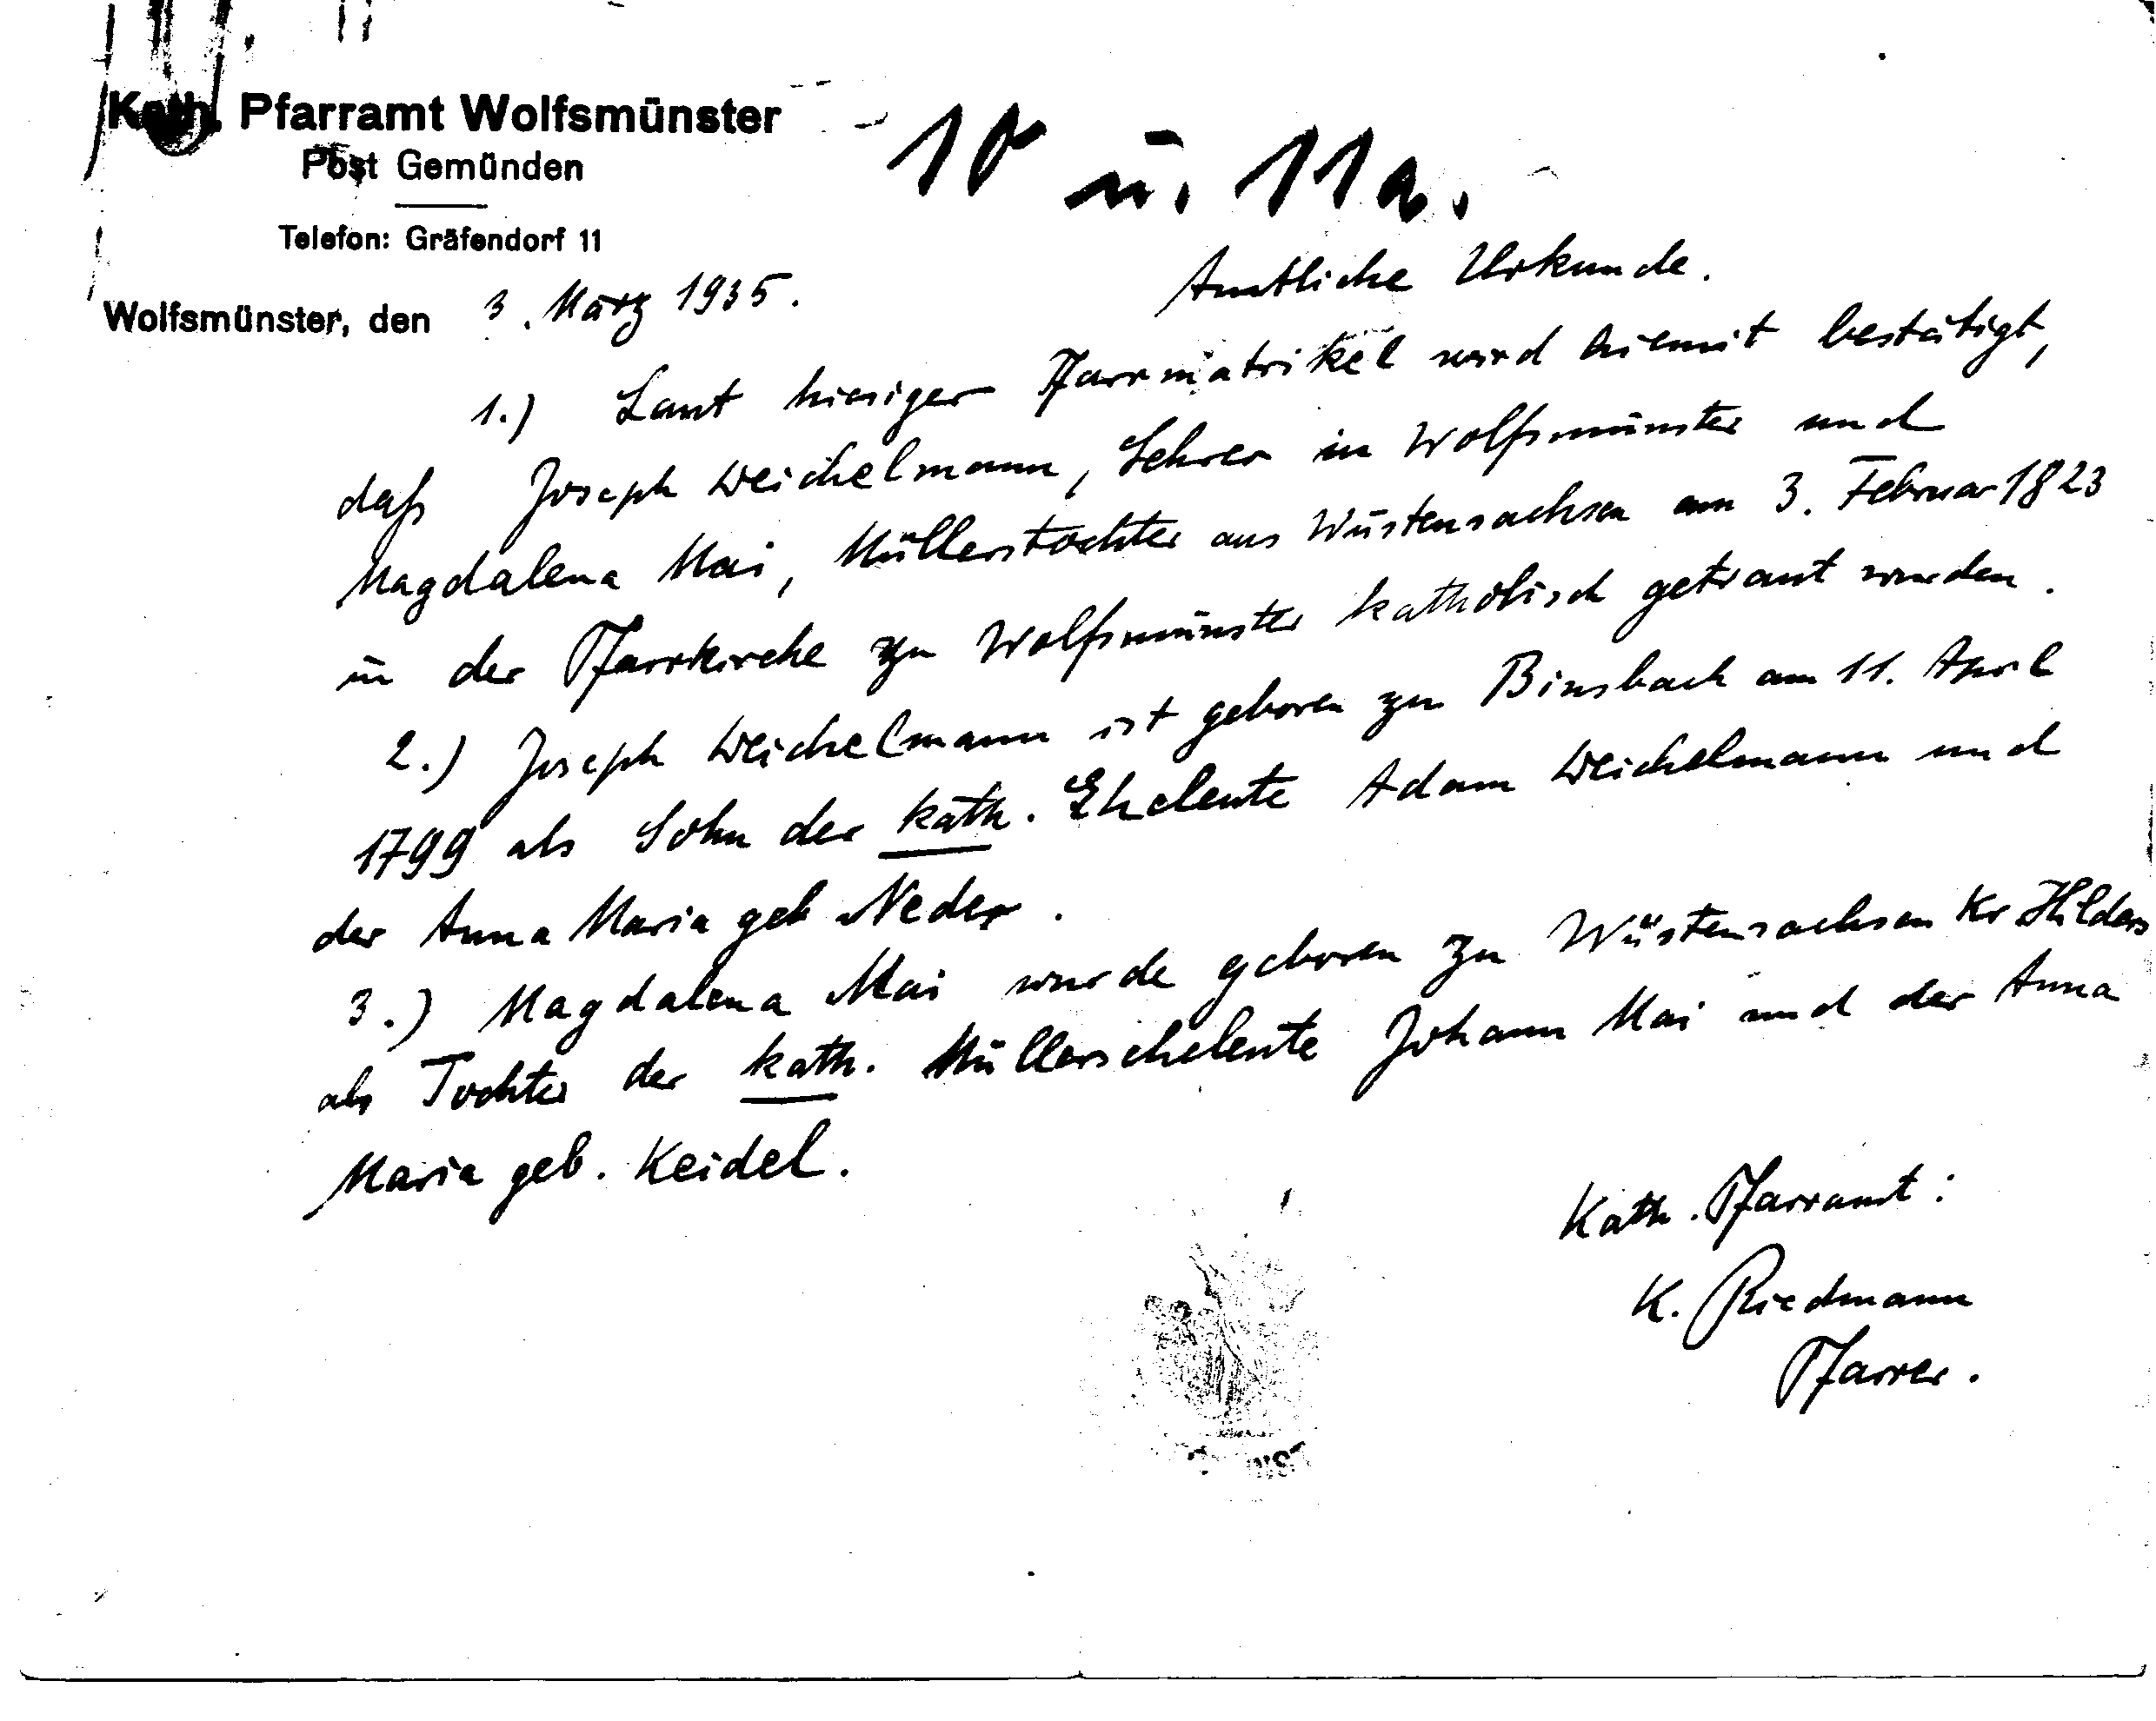 Kath. Pfarramt Wolfsmünster
Post Gemünden
Telefon: Gräfendorf 11
10 u. 11a.
Wolfsmünster, den 3. März 1935.
Amtliche Urkunde.
1.) Laut hiesiger Pfarrmatrikel wird hiemit bestätigt,
daß Joseph Weichelmann, Lehrer in Wolfsmünster und
Magdalena Mai, Müllerstochter aus Wüstensachsen am 3. Februar 1823
in der Pfarrkirche zu Wolfsmünster katholisch getraut wurden.
2.) Joseph Weichelmann ist geboren zu Binsbach am 11. April
1799 als Sohn der kath. Eheleute Adam Weichelmann und
der Anna Maria geb Neder.
3.) Magdalena Mai wurde geboren zu Wüstensachsen Kr Hilders
als Tochter der kath. Müllerseheleute Johann Mai und der Anna
Maria geb. Keidel.
Kath. Pfarramt:
K. Riedmann
Pfarrer.